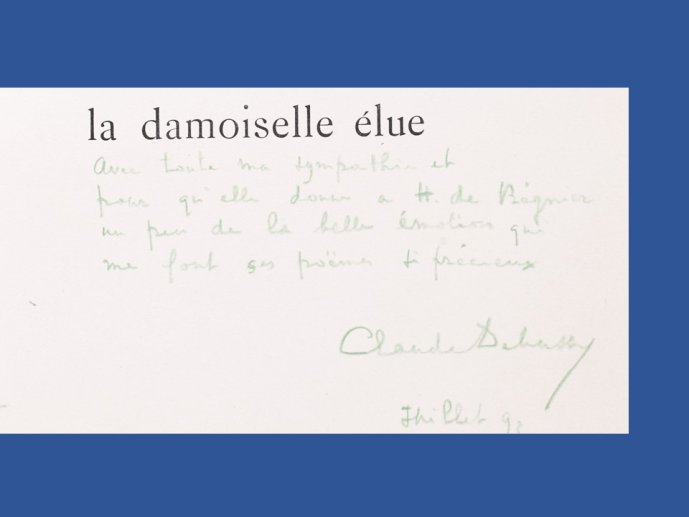 la damoiselle élue
Avec toute ma sympathie et
pour qu'elle donne a H. de Régnier
un peu de la belle émotion que
me font ses poëmes si précieux
Claude Debussy
Juillet 93